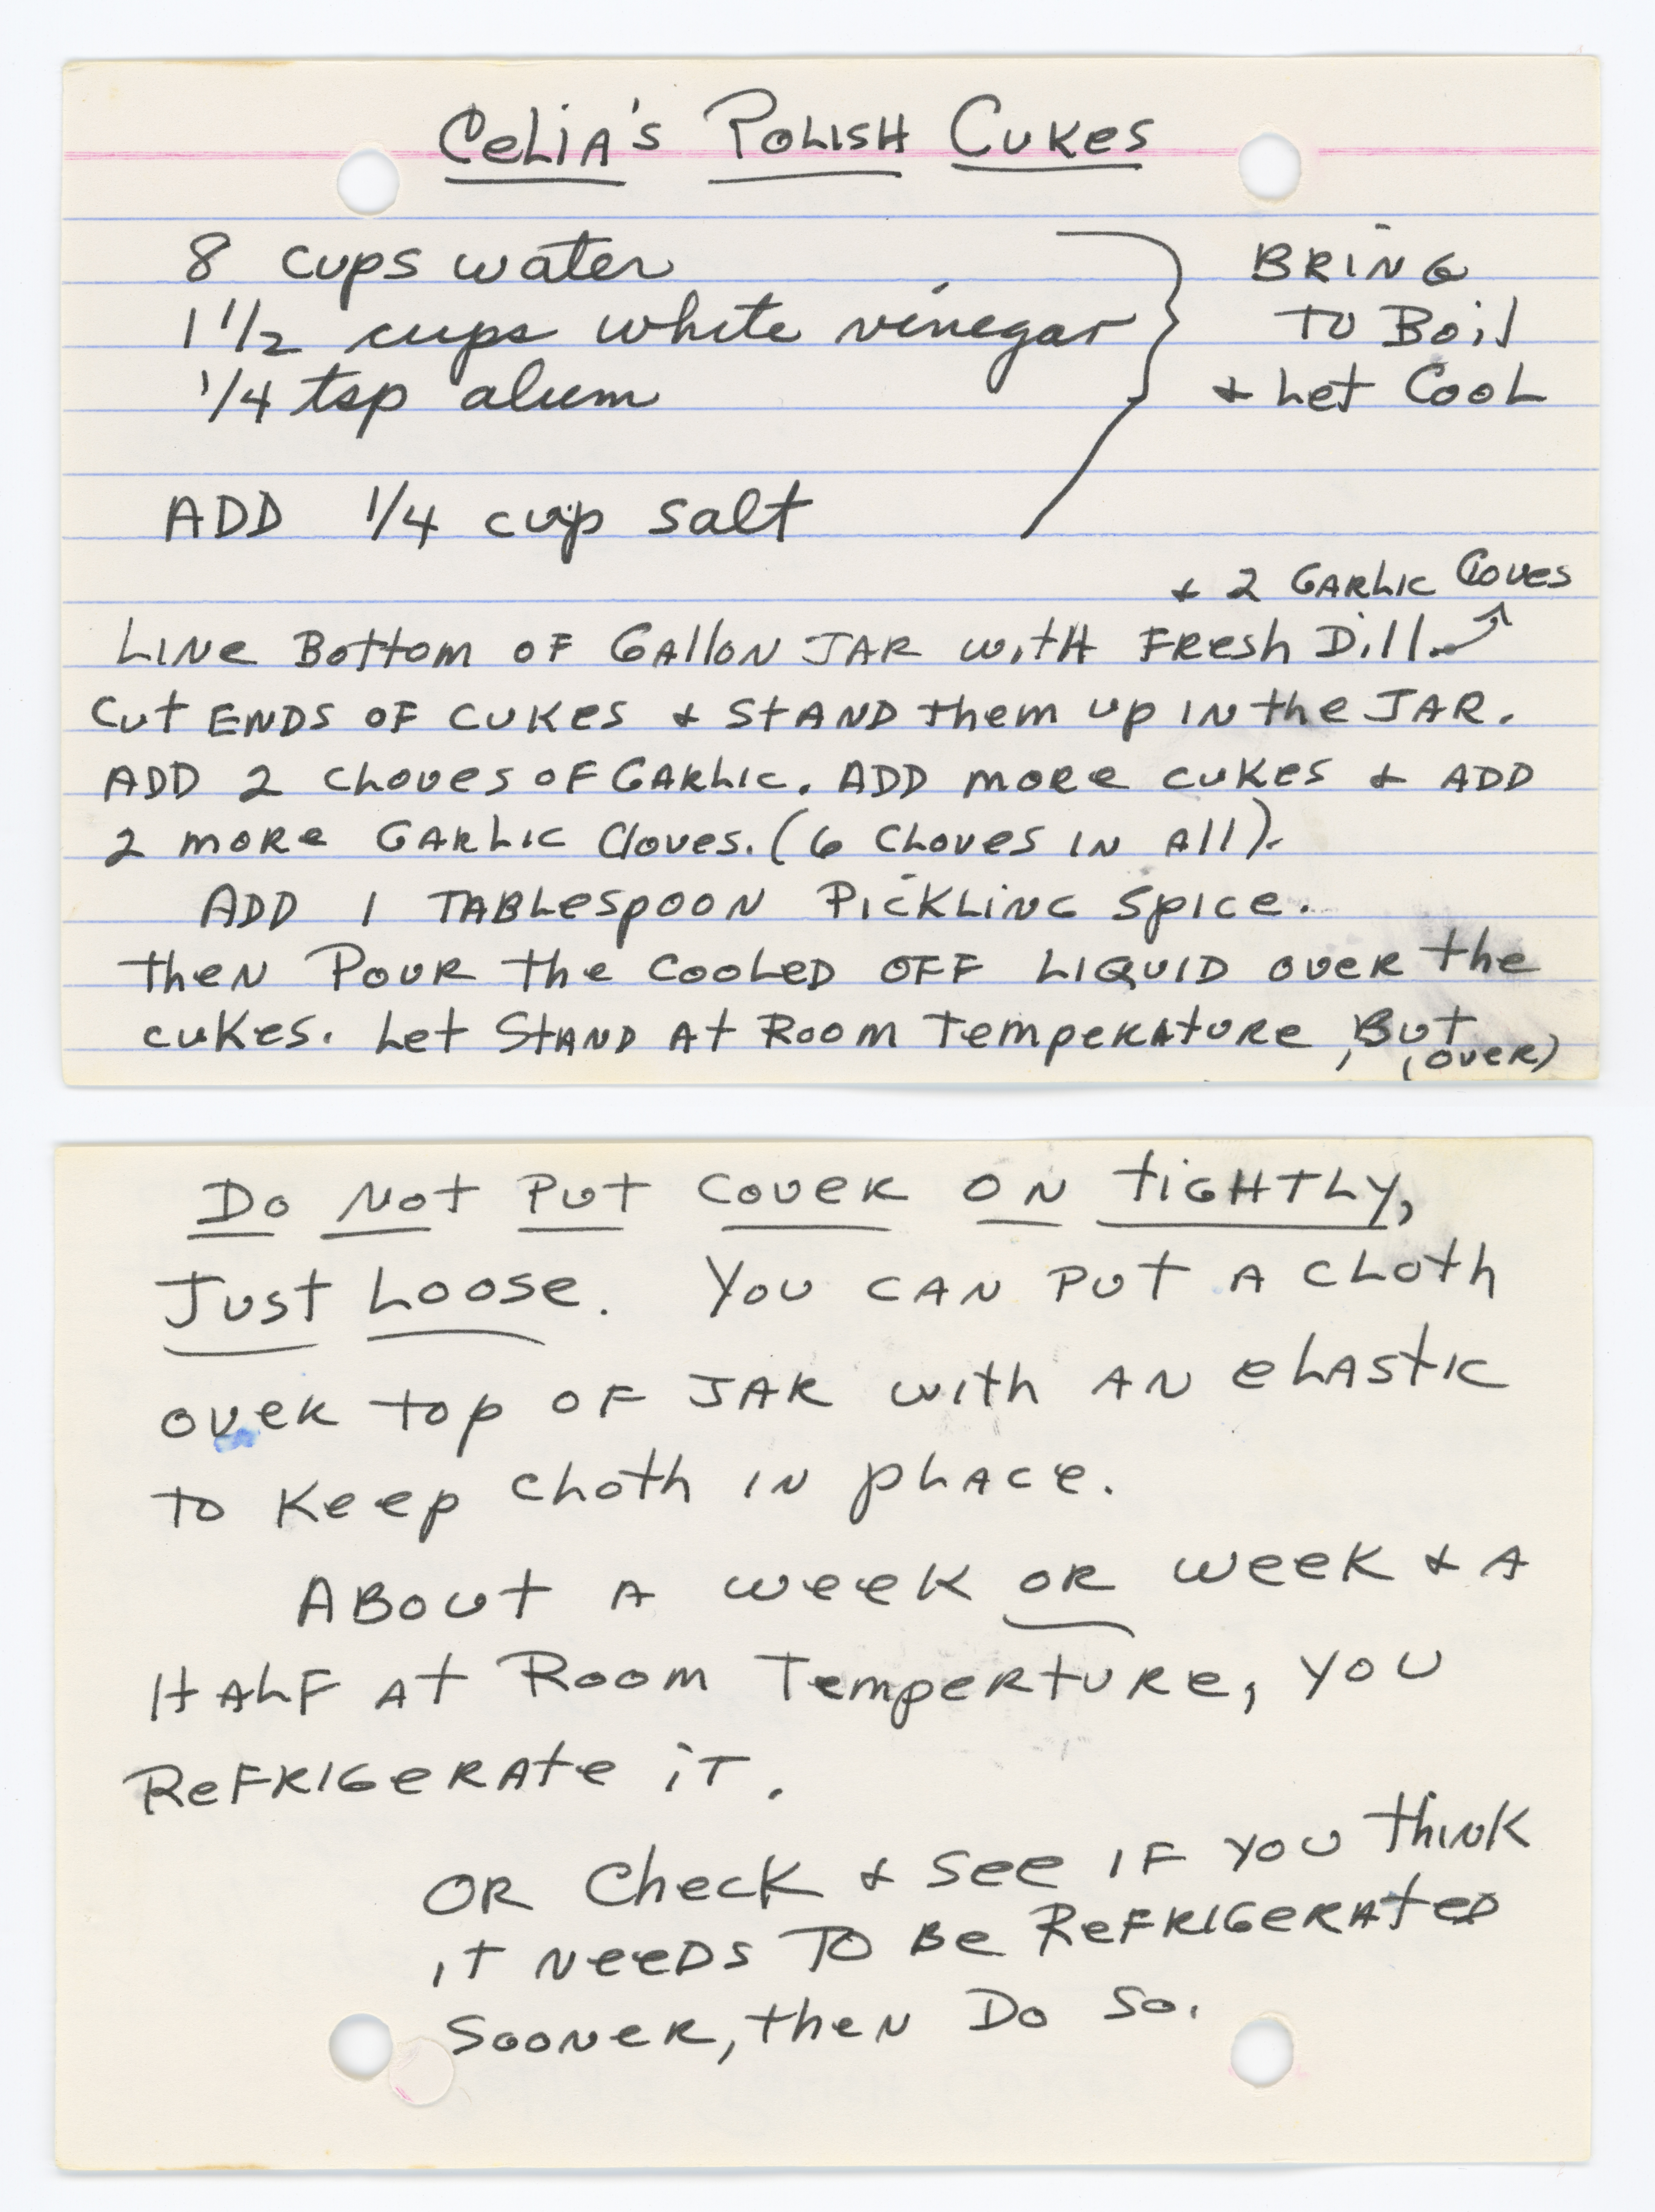 Celia's Polish Cukes
8 cups water
1 1/2 cups white vinegar
1/4 tsp alum
Bring
to Boil
& Let Cool
ADD 1/4 cup salt
& 2 Garlic Cloves
Line Bottom of Gallon Jar with Fresh Dill.
Cut ends of cukes & stand them up in the Jar.
ADD 2 cloves of Garlic. ADD more cukes & ADD
2 more Garlic Cloves. (6 Cloves in All).
ADD 1 Tablespoon Pickling Spice.
Then Pour the cooled off liquid over the
cukes. Let Stand At Room Temperature, But
(over)
Do Not Put Cover on tightly,
Just Loose. You can put a cloth
over top of Jar with an elastic
to keep cloth in place.
About a week or week & a
Half at Room Temperture, you
Refrigerate it.
OR Check & see if you think
it needs to be Refrigerated
Sooner, then Do So.